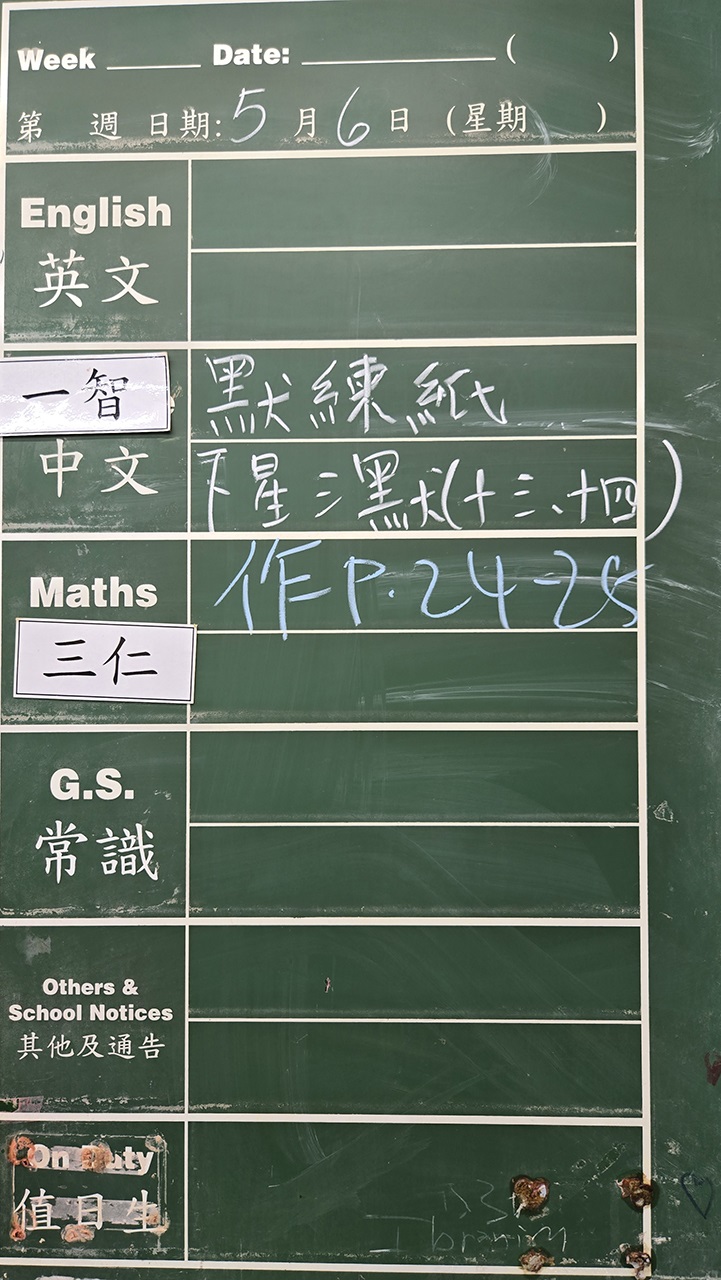 Week ______ Date: ____________ ( )
第 週 日期: 5 月 6 日 (星期 )
English
英文
一智
默練紙
中文
下星三默(十三、十四)
Maths
作P.24-25
三仁
G.S.
常識
Others &
School Notices
其他及通告
On Duty
值日生